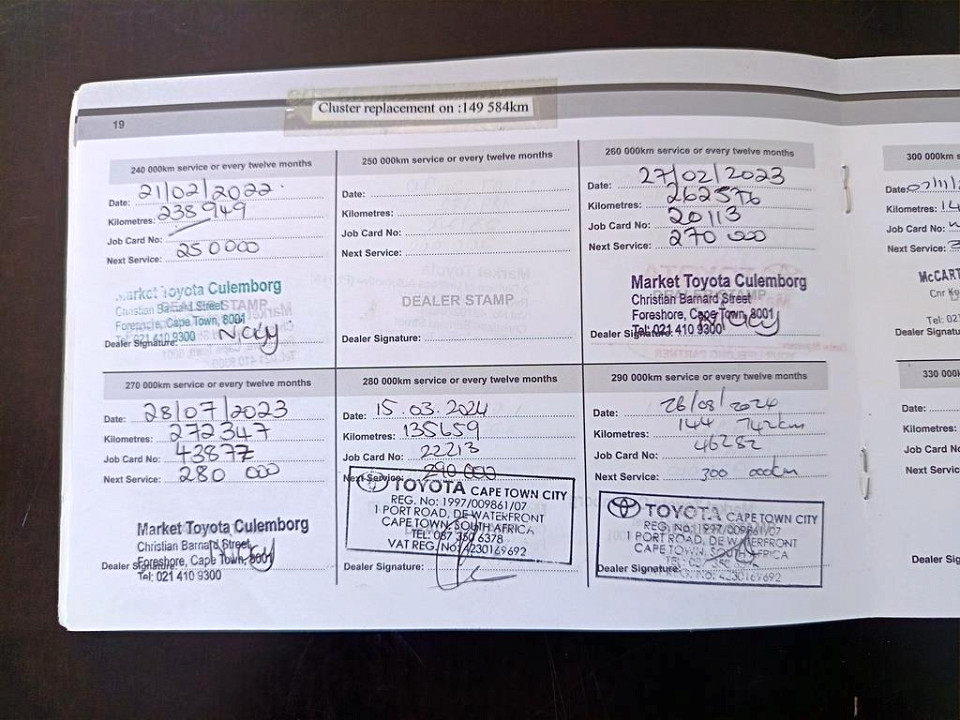 Cluster replacement on :149 584km
19
240 000km service or every twelve months
Date: 21/02/2022
Kilometres: 238949
Job Card No:
Next Service: 250000
Market Toyota Culemborg
DEALER STAMP
Christian Barnard Street
Foreshore, Cape Town, 8001
Tel: 021 410 9300
Dealer Signature: Nicky
250 000km service or every twelve months
Date:
Kilometres:
Job Card No:
Next Service:
DEALER STAMP
Dealer Signature:
260 000km service or every twelve months
Date: 27/02/2023
Kilometres: 262576
Job Card No: 20113
Next Service: 270 000
Market Toyota Culemborg
DEALER STAMP
Christian Barnard Street
Foreshore, Cape Town, 8001
Tel: 021 410 9300
Dealer Signature: Nicky
270 000km service or every twelve months
Date: 28/07/2023
Kilometres: 272347
Job Card No: 43877
Next Service: 280 000
Market Toyota Culemborg
Christian Barnard Street
Foreshore, Cape Town, 8001
Dealer Signature:
Tel: 021 410 9300
280 000km service or every twelve months
Date: 15.03.2024
Kilometres: 135659
Job Card No: 22213
Next Service: 290 000
TOYOTA CAPE TOWN CITY
REG. No: 1997/009861/07
1 PORT ROAD, DE WATERFRONT
CAPE TOWN, SOUTH AFRICA
TEL: 087 350 6378
VAT REG. No: 4230169692
Dealer Signature:
290 000km service or every twelve months
Date: 26/08/2024
Kilometres: 144 742km
Job Card No: 46282
Next Service: 300 000km
TOYOTA CAPE TOWN CITY
REG. No: 1997/009861/07
1 PORT ROAD, DE WATERFRONT
CAPE TOWN, SOUTH AFRICA
REG. No: 4230169692
Dealer Signature:
300 000km
Date: 07/11/
Kilometres: 14
Job Card No:
Next Service: 3
McCART
Cnr
Tel: 02
Dealer Signatu
330 000k
Date:
Kilometres:
Job Card No
Next Servic
Dealer Sig